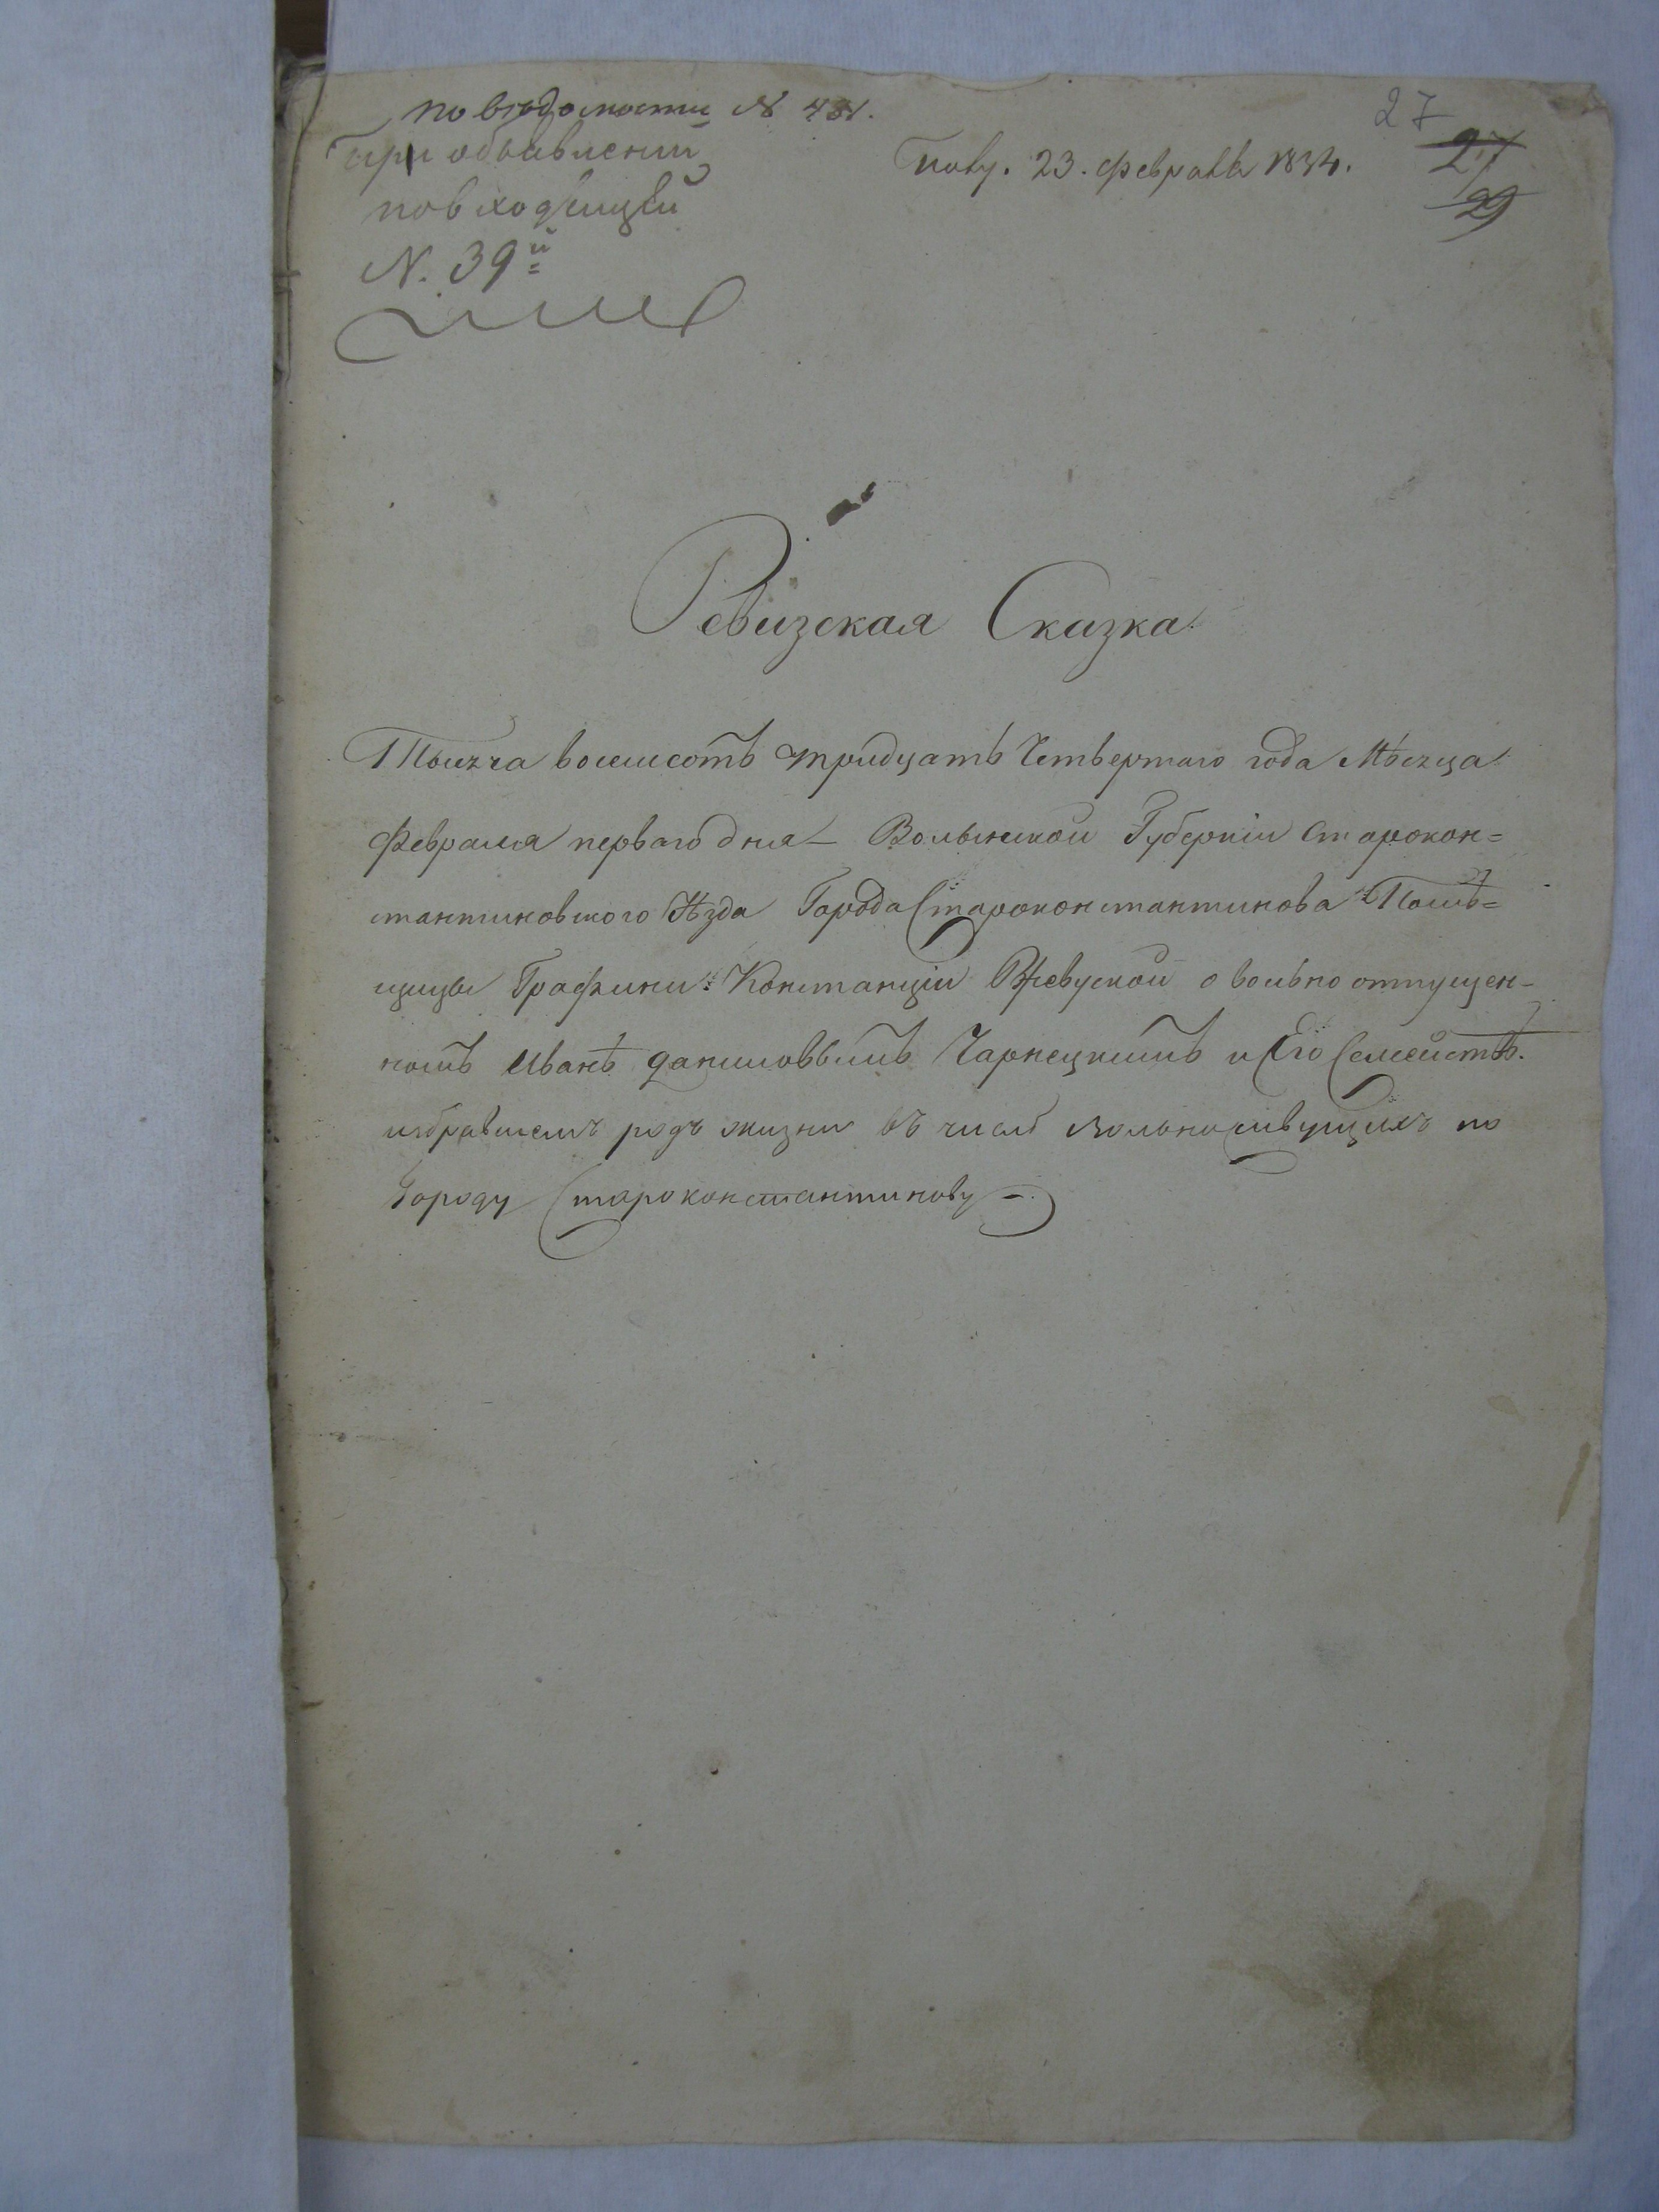 по ведомости N 481.
При объявлении
по входящей
N. 39й
полу. 23. февраля 1834.
27
27
29
Ревизская Сказка
Тысяча восемсотъ тридцать Четвертаго года Мѣсяца
Февраля перваго дня – Волынской Губерніи Старокон=
стантиновского Уѣзда Города Староконстантинова Помѣ=
щицы Графини: Констанціи Ржевуской о вольно отпущен-
номъ Иванѣ даниловымъ Чарнецкимъ и Его Семействѣ.
избравшемъ родъ жизни въ числѣ вольноживущихъ по
Городу Староконстантинову –